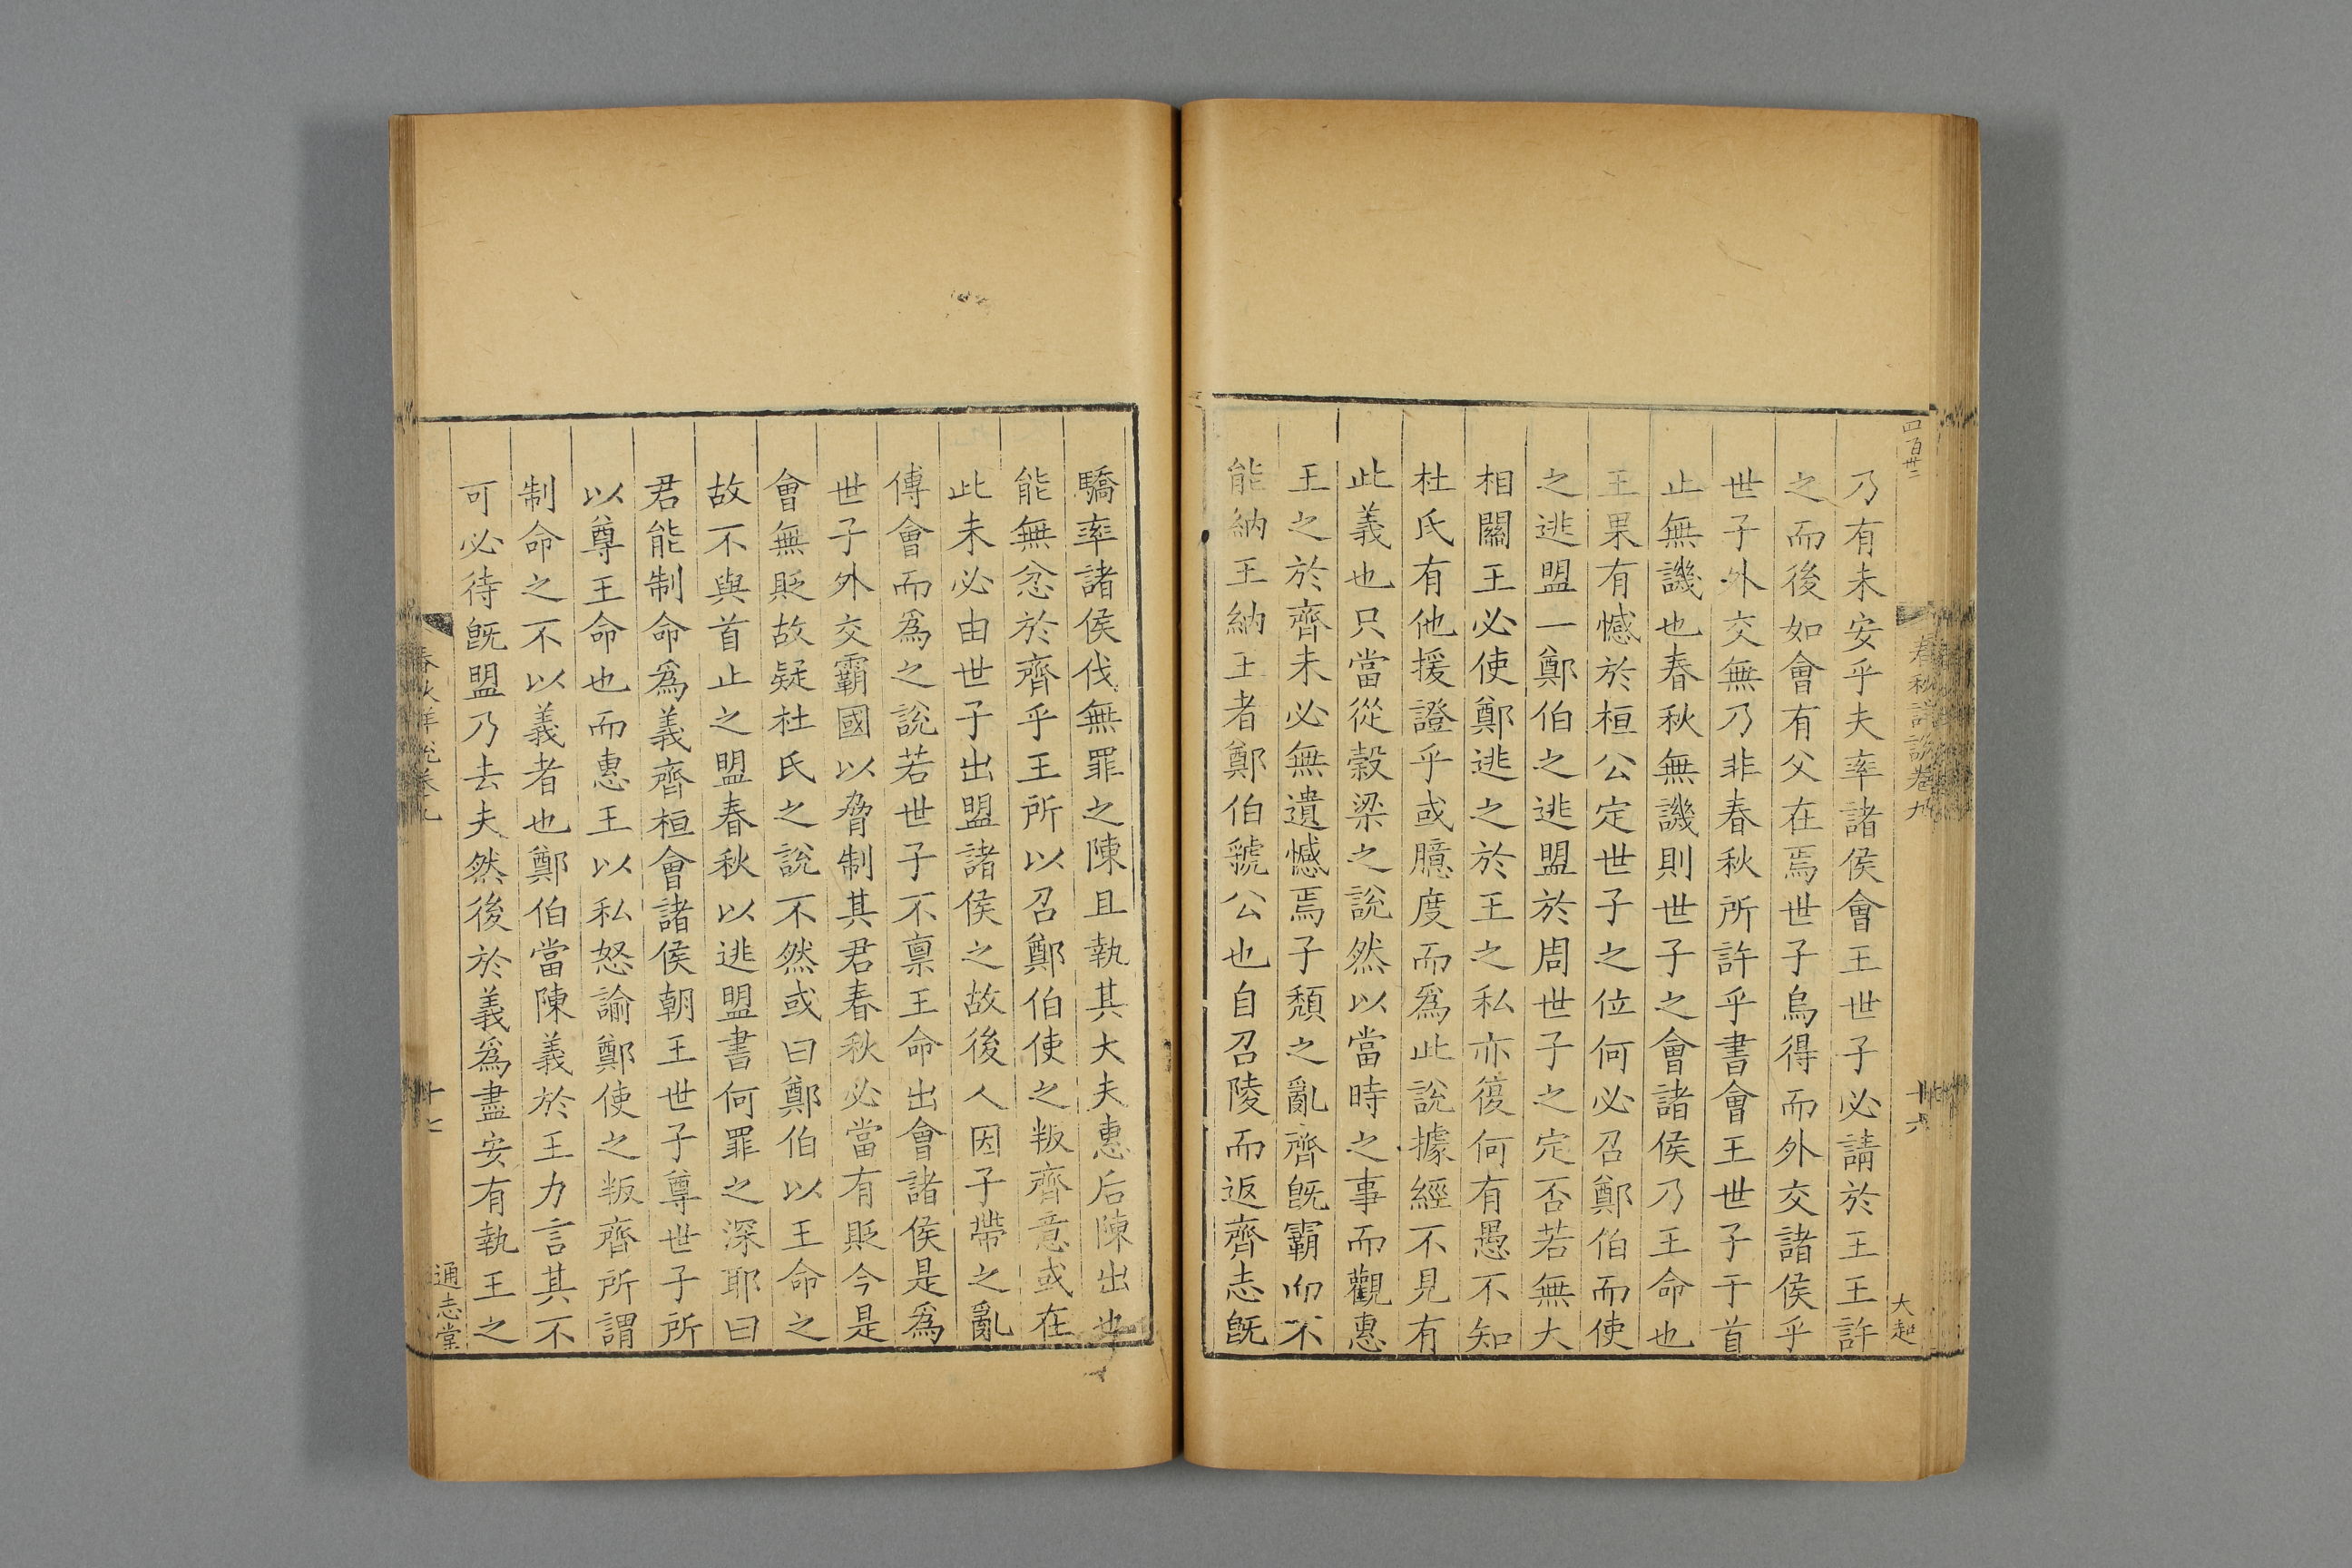 四百卅二
春秋詳說卷九
十六
大起
乃有未安乎夫率諸侯會王世子必請於王王許
之而後如會有父在焉世子烏得而外交諸侯乎
世子外交無乃非春秋所許乎書會王世子于首
止無譏也春秋無譏則世子之會諸侯乃王命也
王果有憾於桓公定世子之位何必召鄭伯而使
之逃盟一鄭伯之逃盟於周世子之定否若無大
相關王必使鄭逃之於王之私亦復何有愚不知
杜氏有他援證乎或臆度而爲此說據經不見有
此義也只當從穀梁之說然以當時之事而觀惠
王之於齊未必無遺憾焉子頹之亂齊旣霸而不
能納王納王者鄭伯虢公也自召陵而返齊志旣
驕率諸侯伐無罪之陳且執其大夫惠后陳出也
能無忿於齊乎王所以召鄭伯使之叛齊意或在
此未必由世子出盟諸侯之故後人因子帶之亂
傅會而爲之說若世子不禀王命出會諸侯是爲
世子外交霸國以脅制其君春秋必當有貶今是
會無貶故疑杜氏之說不然或曰鄭伯以王命之
故不與首止之盟春秋以逃盟書何罪之深耶曰
君能制命爲義齊桓會諸侯朝王世子尊世子所
以尊王命也而惠王以私怒諭鄭使之叛齊所謂
制命之不以義者也鄭伯當陳義於王力言其不
可必待旣盟乃去夫然後於義爲盡安有執王之
春秋詳說卷九
十七
通志堂